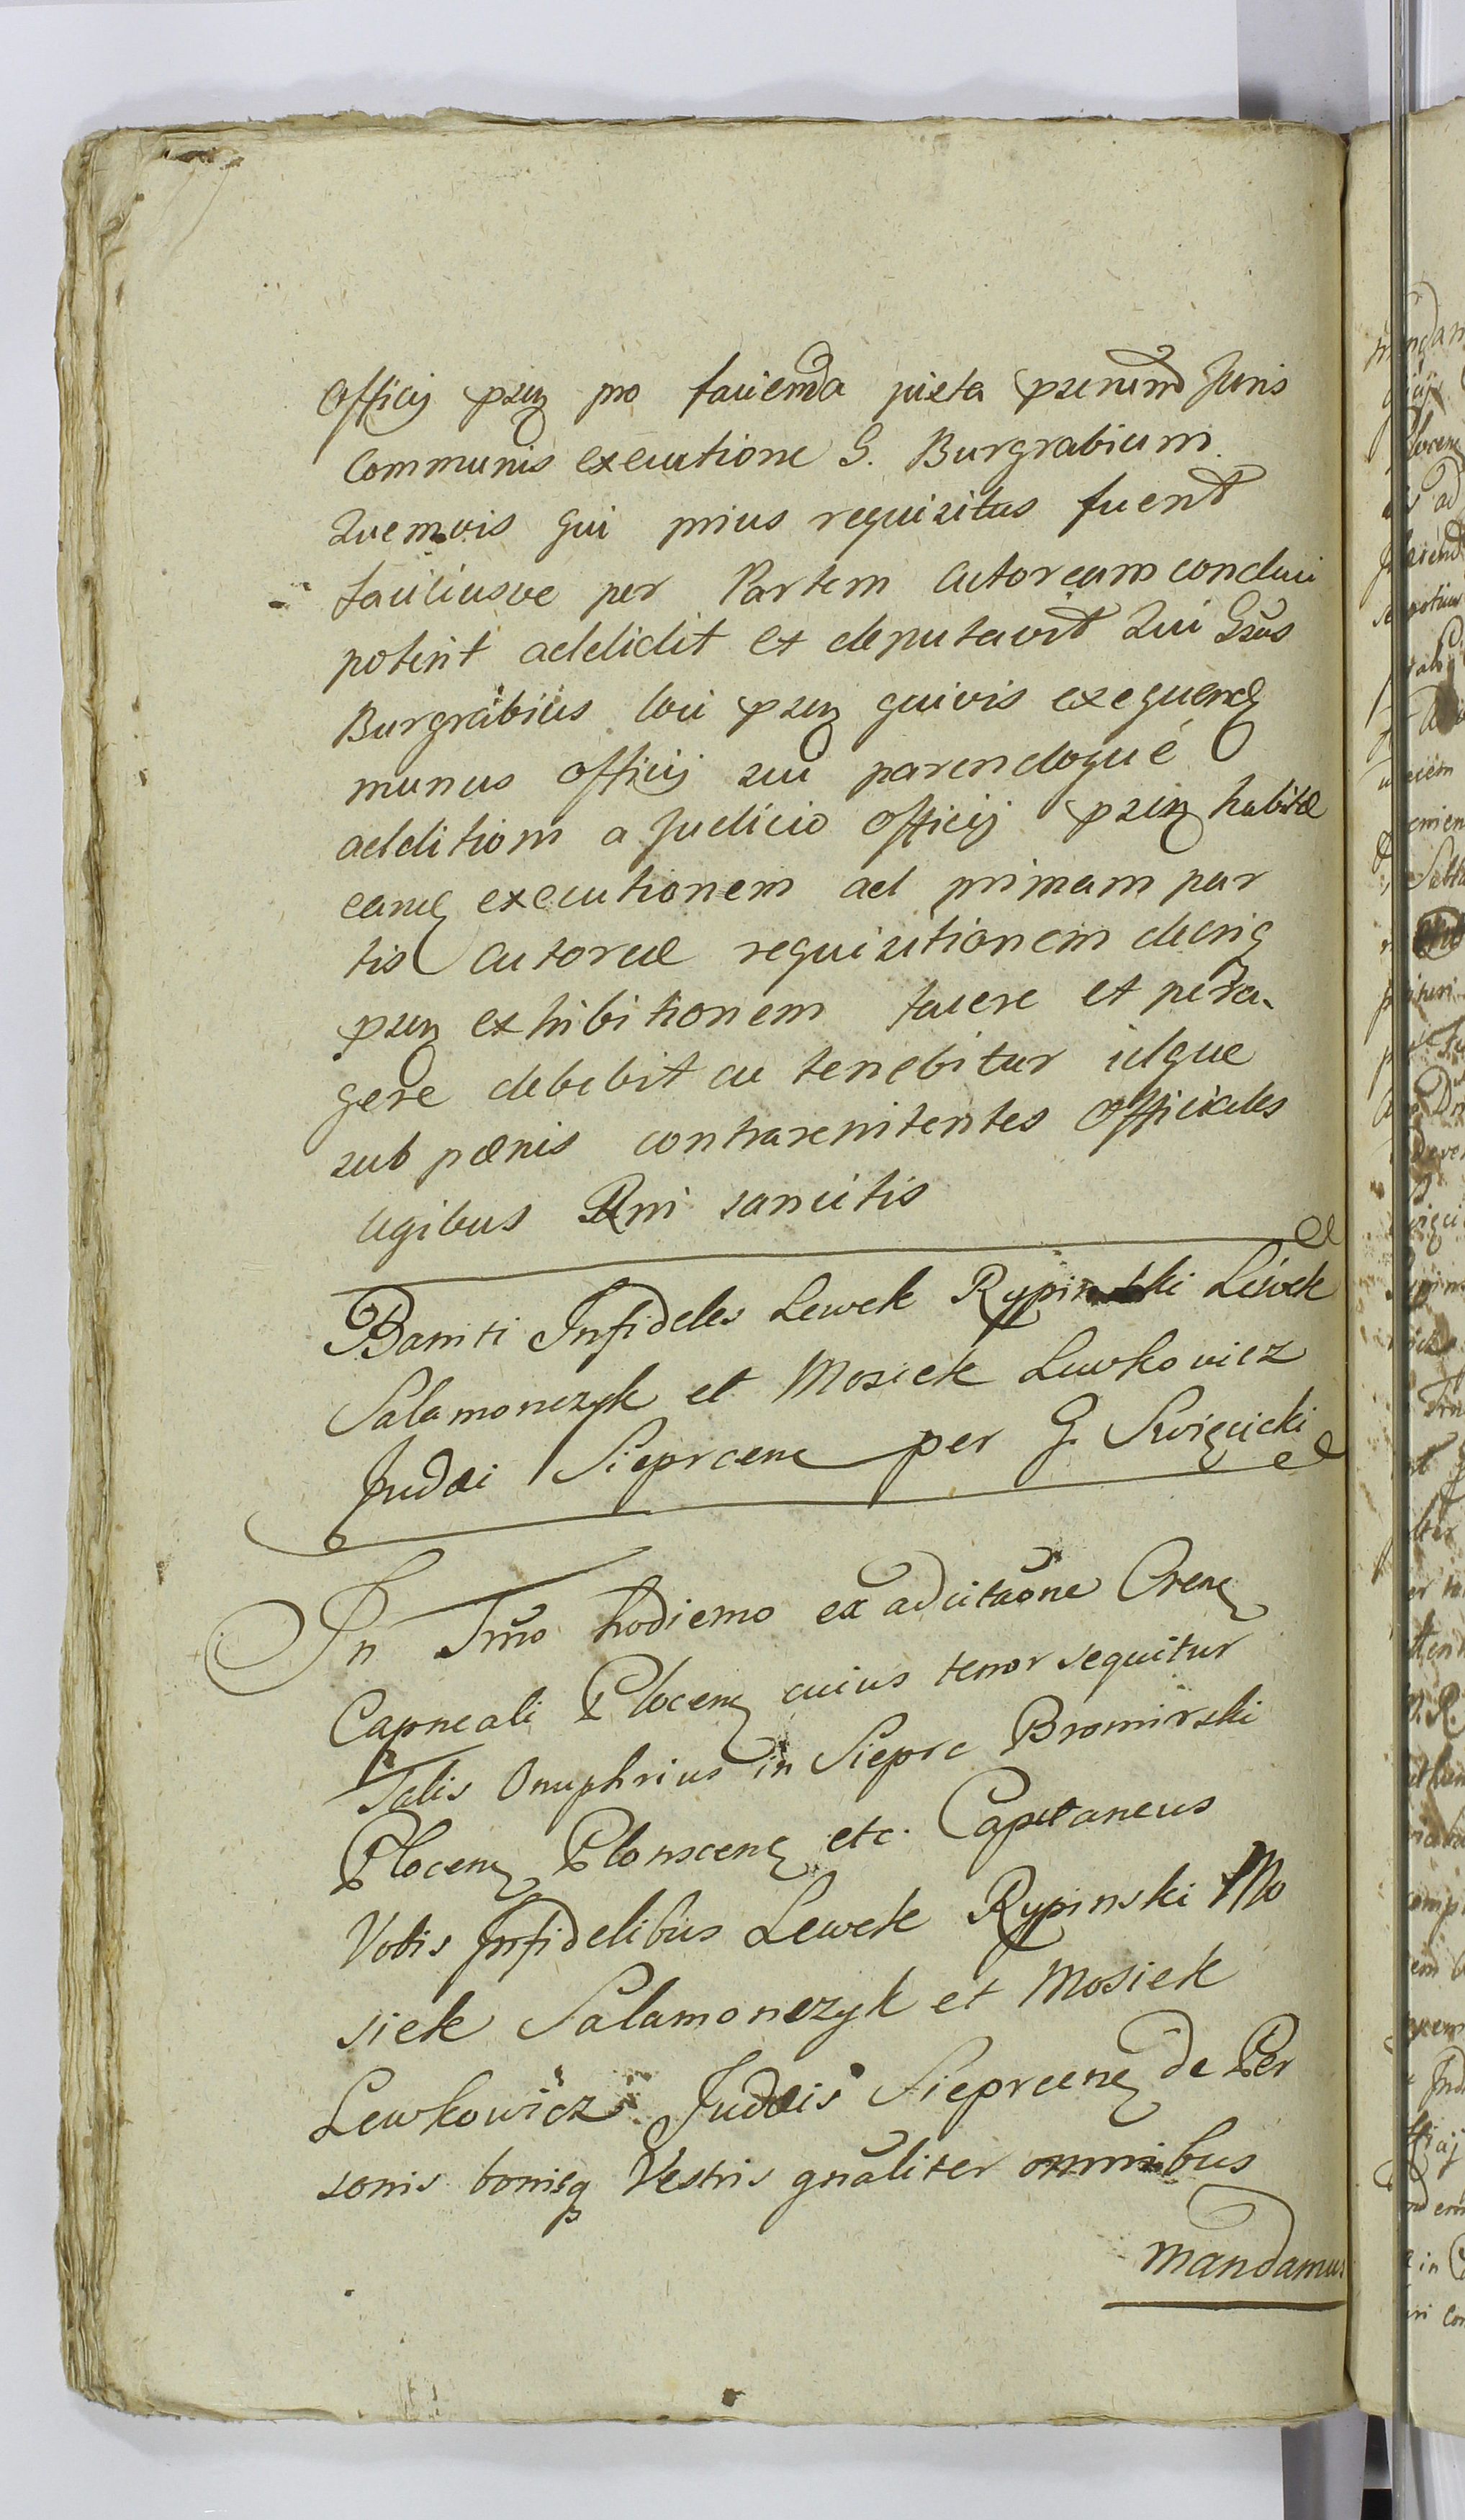 Officij psnz pro facienda juxta psenum Juris
Communis executione G. Burgrabium
Quemvis qui prius requisitus fuerit
faciliusve per Partem Actoream conduci
poterit addidit et deputavit Qui Gsus
Burgrabius loci psnz quivis exequend
munus officij sui parendoque
additioni a Judicio Officij psnz habitæ
eand executionem ad primam par
tis Actoreæ requisitionem decrig
psnz exhibitionem facere et pera-
gere debebit ac tenebitur idque
sub pœnis contrarenitentes Officiales
legibus Rni sancitis
Baniti Infideles Lewek Rypinski Lewek
Salamonczyk et Mosiek Lewkowicz
Judæi Sieprcenc per G. Swięcicki
In Tmõ hodierno ex adcitaõne Orenc
Capneali Plocenc cuius tenor sequitur
Talis Onuphrius in Sieprc Bromirski
Plocenc Plonscenc etc. Capitaneus
Vobis Infidelibus Lewek Rypinski Mo
siek Salamonczyk et Mosiek
Lewkowicz Judæis Sieprcenc de Per
sonis bonisq Vestris gnãliter omnibus
mandamus